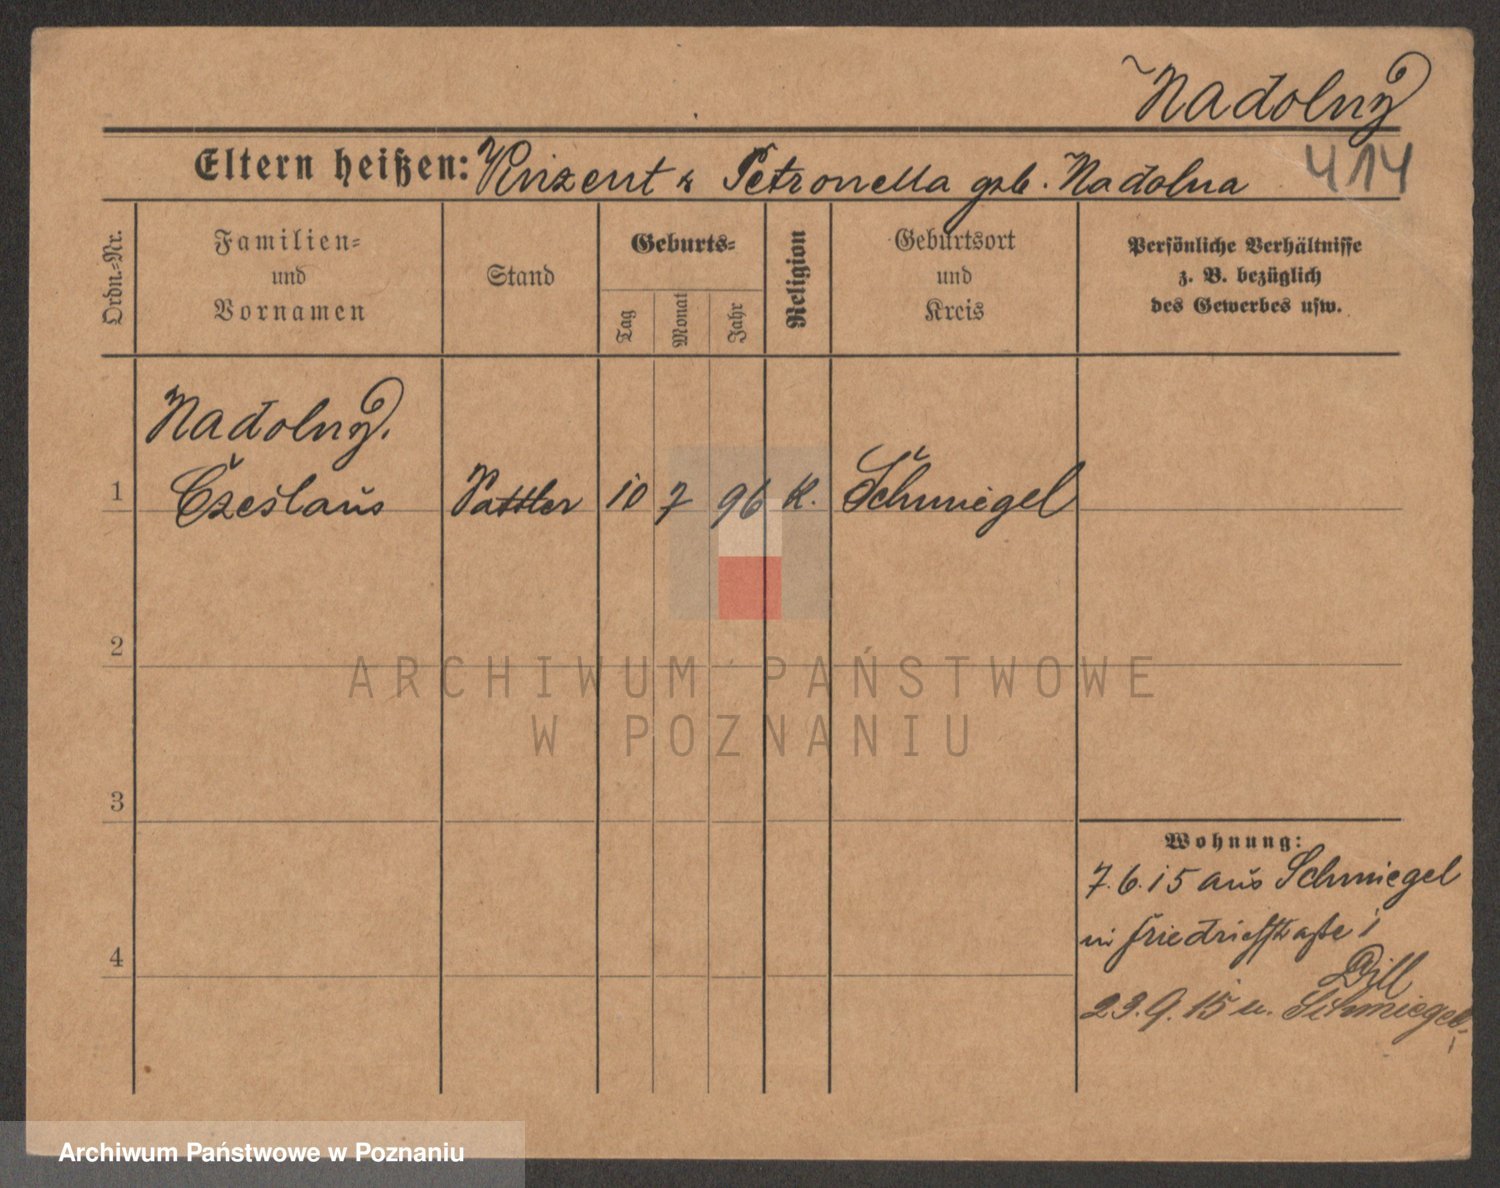 Nadolny
Eltern heißen: Vinzent & Petronella geb. Nadolna 414
Ordn.-Nr.
Familien-
und
Vornamen
Stand
Geburts-
Tag
Monat
Jahr
Religion
Geburtsort
und
Kreis
Persönliche Verhältnisse
z. B. bezüglich
des Gewerbes usw.
Nadolny.
1 Czeslaus Sattler 10 7 96 K. Schmiegel
2
ARCHIWUM PAŃSTWOWE
W POZNANIU
3
Wohnung:
7.6.15 aus Schmiegel
in Friedrichstraße 1
4
Dill
23.9.15 n. Schmiegel
Archiwum Państwowe w Poznaniu